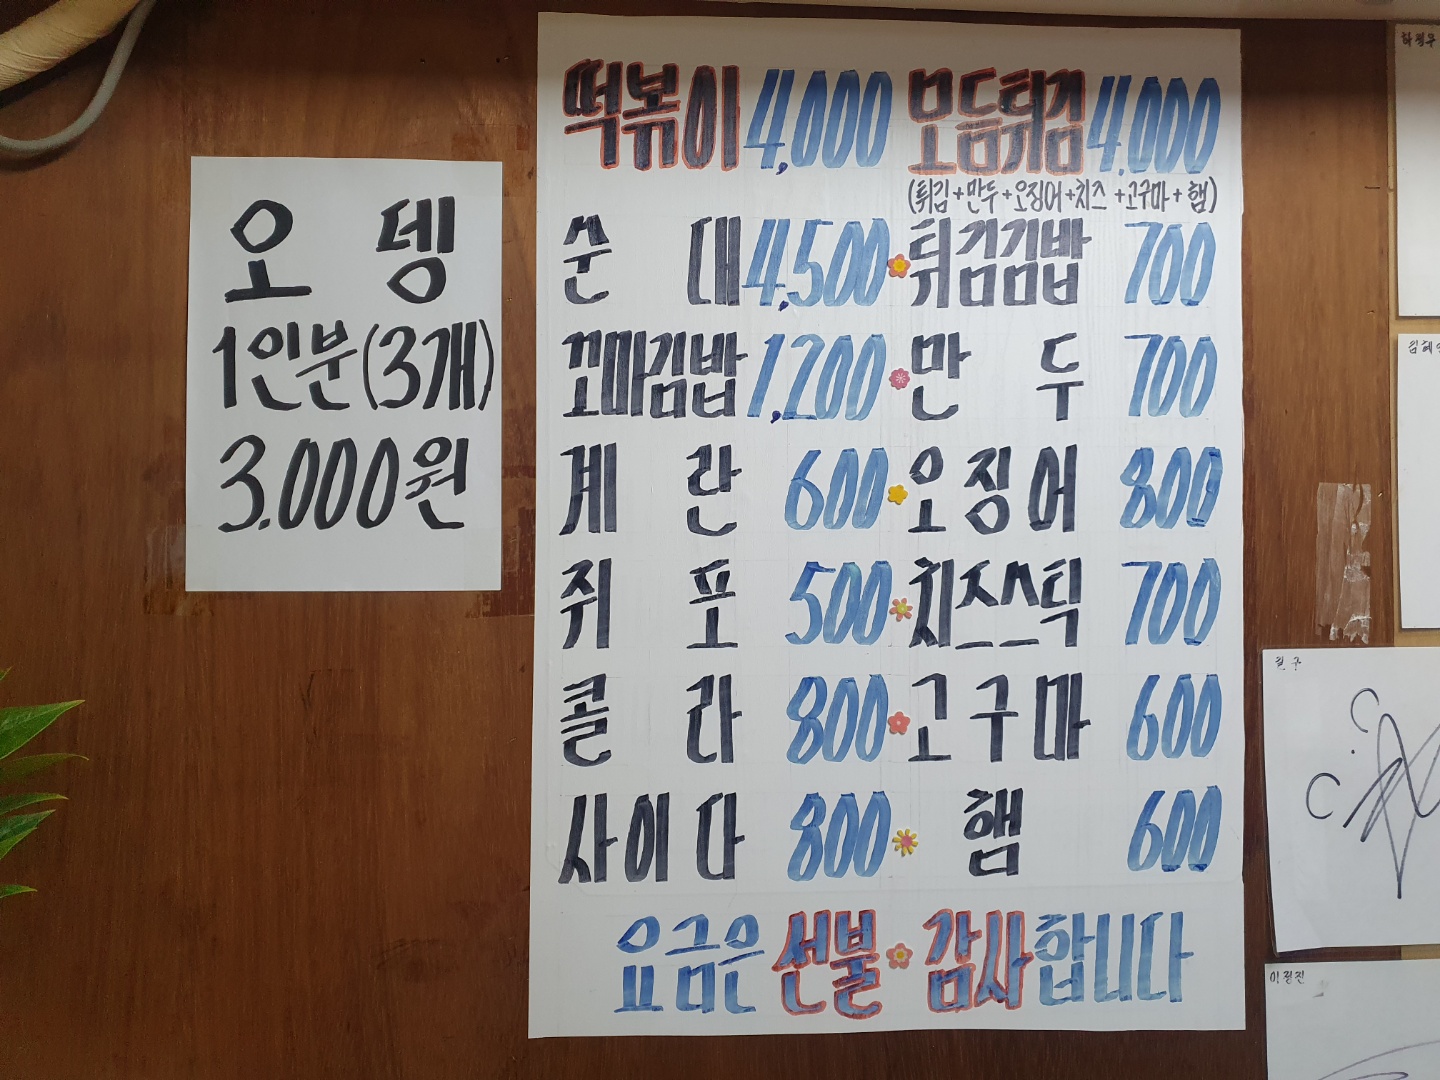 오뎅
1인분(3개)
3.000원
떡볶이 4,000 모듬튀김 4,000
(튀김+만두+오징어+치즈+고구마+햄)
순대 4,500 튀김김밥 700
꼬마김밥 1,200 만두 700
계란 600 오징어 800
쥐포 500 치즈스틱 700
콜라 800 고구마 600
사이다 800 햄 600
요금은 선불 감사합니다
이정진